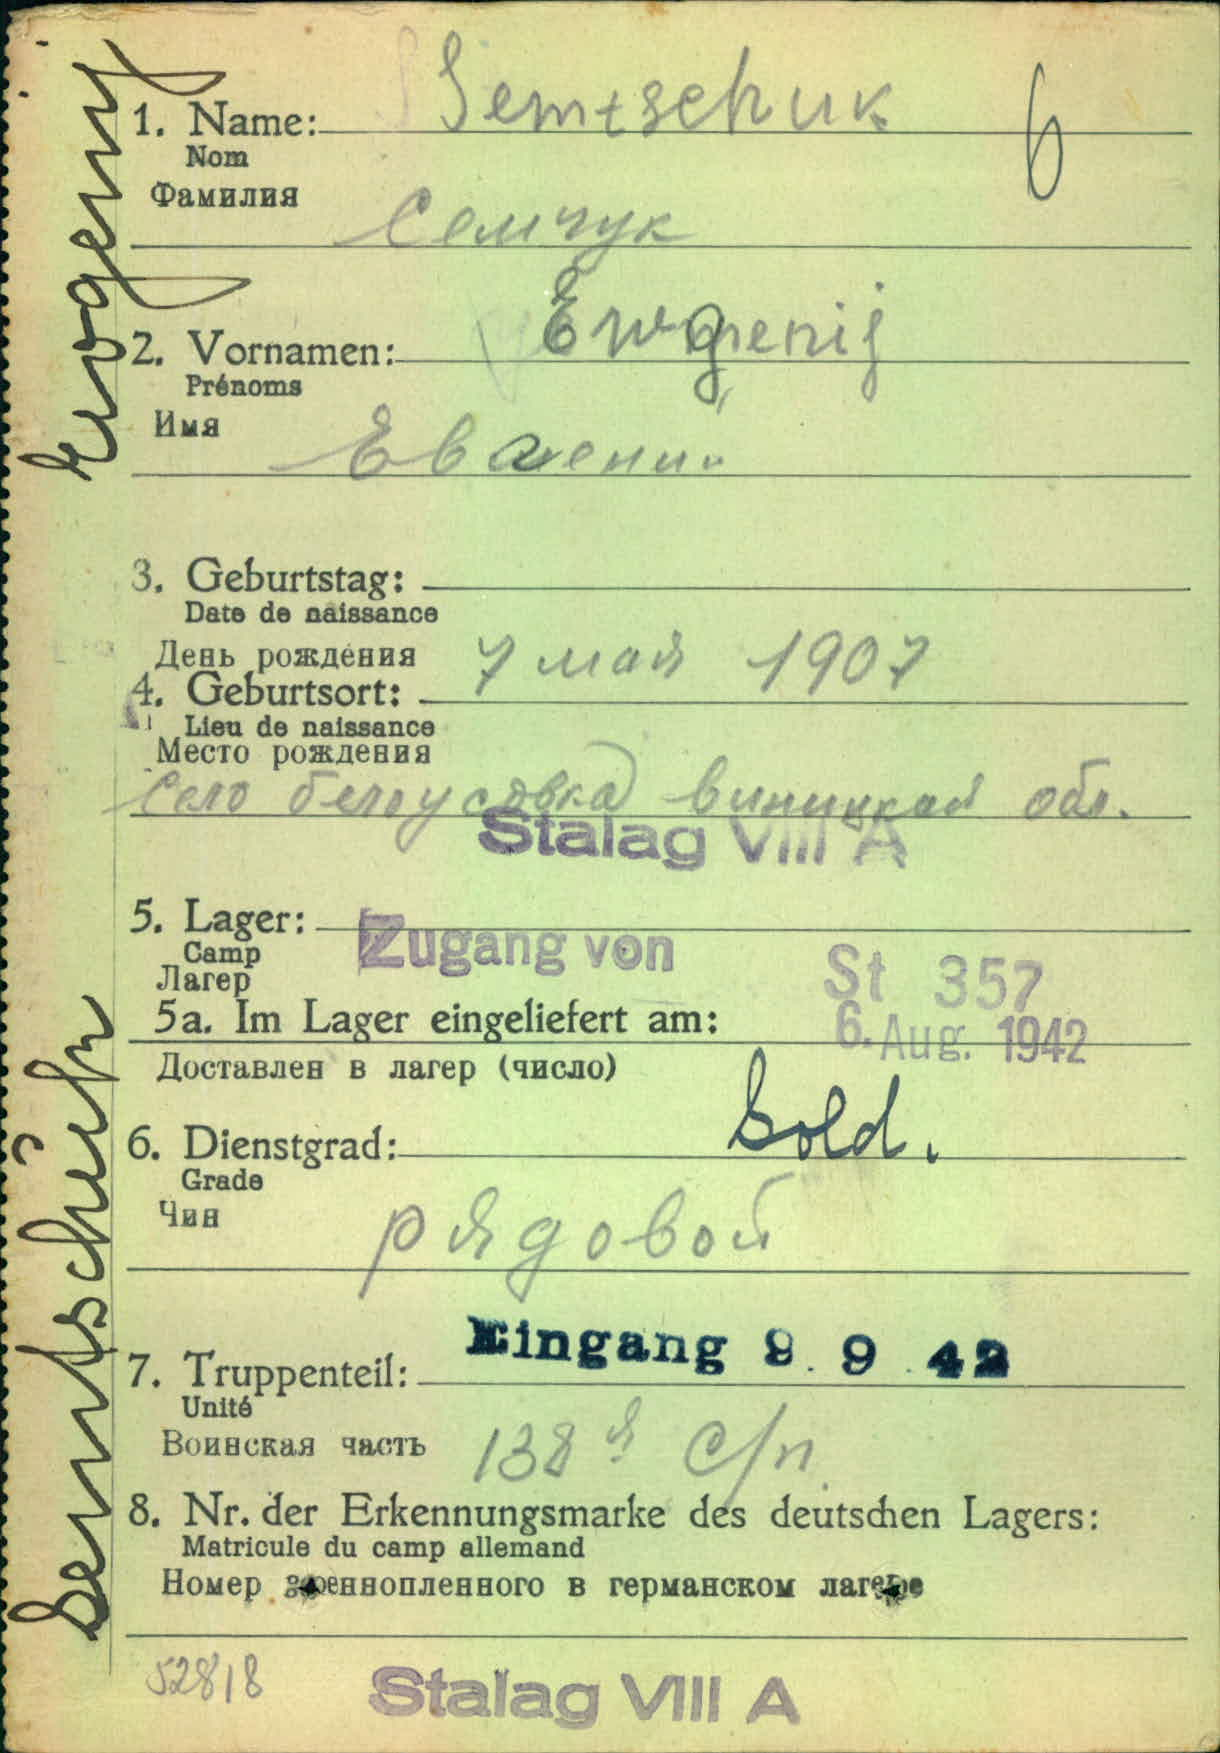 1. Name: Semtschuk 6
Nom
Фамилия
Семчук
2. Vornamen: Ewgenij
Prénoms
Имя
Евгений
3. Geburtstag:
Date de naissance
День рождения 7 мая 1907
4. Geburtsort:
Lieu de naissance
Место рождения
село белоусовка виницкай обл.
Stalag VIII A
5. Lager: Zugang von St 357
Camp
Лагер
5a. Im Lager eingeliefert am: 6. Aug. 1942
Доставлен в лагер (число)
6. Dienstgrad: Sold.
Grade
Чин
рядовой
Eingang 9. 9. 42
7. Truppenteil:
Unité
Воинская часть 138 й с/п
8. Nr. der Erkennungsmarke des deutschen Lagers:
Matricule du camp allemand
Номер военнопленного в германском лагере
52818
Stalag VIII A
Semtschuk Ewgenij